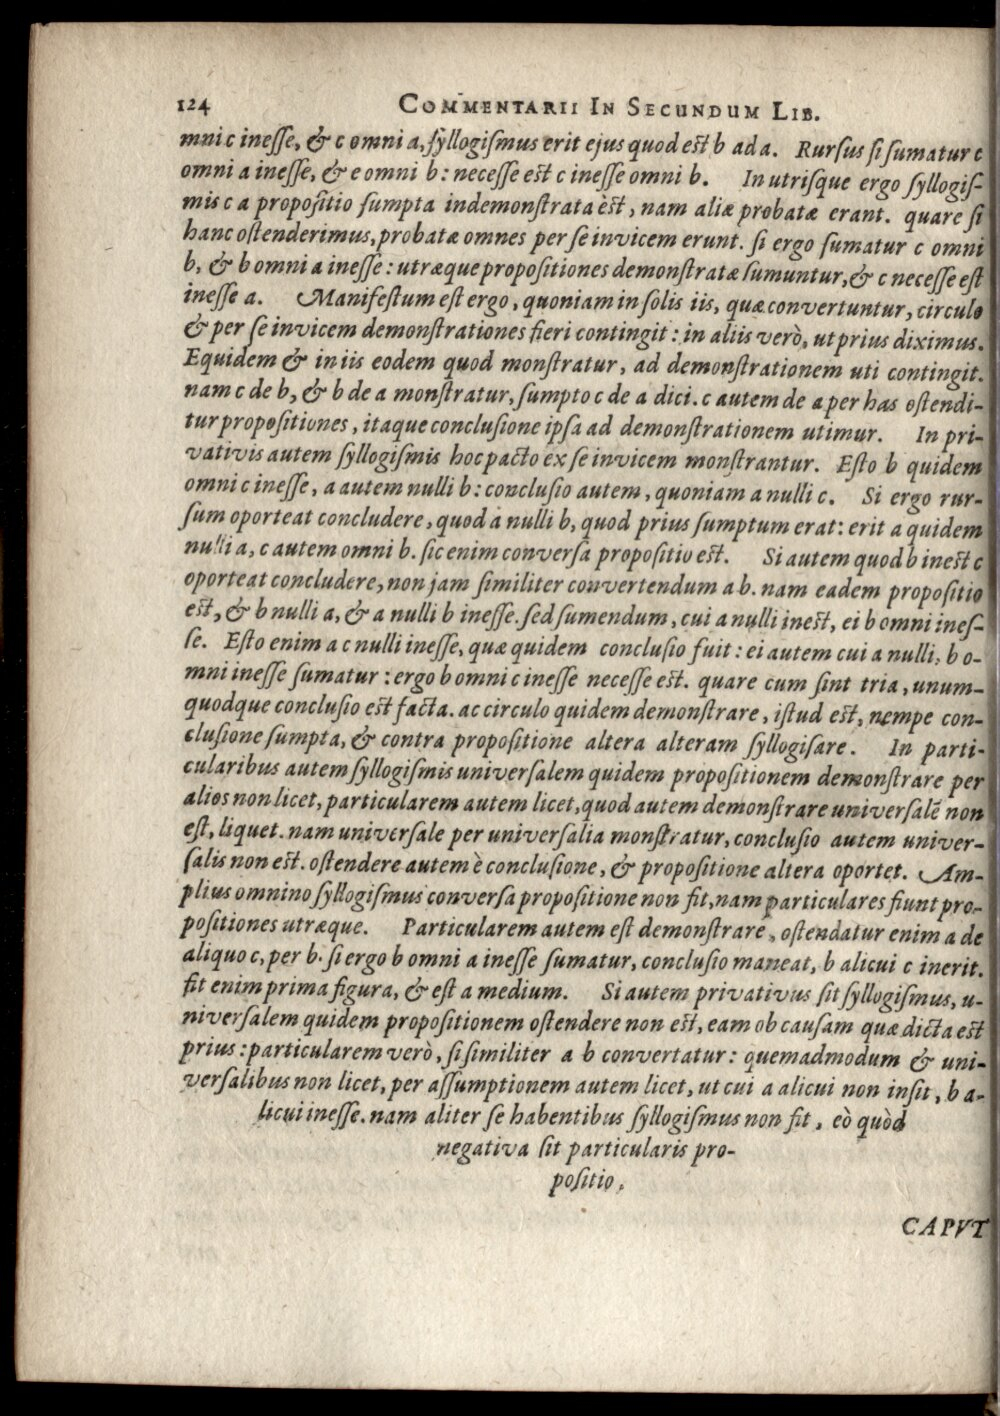 124 COMMENTARII IN SECUNDUM LIB.
mni c inesse, & c omni a, syllogismus erit ejus quod est b ad a. Rursus si sumatur c
omni a inesse, & e omni b : necesse est c inesse omni b. In utrisque ergo syllogis-
mis c a propositio sumpta indemonstrata est, nam aliæ probatæ erant. quare si
hanc ostenderimus, probatæ omnes per se invicem erunt. si ergo sumatur c omni
b, & b omni a inesse : utræque propositiones demonstratæ sumuntur, & c necesse est
inesse a. Manifestum est ergo, quoniam in solis iis, quæ convertuntur, circulo
& per se invicem demonstrationes fieri contingit : in aliis verò, ut prius diximus.
Equidem & in iis eodem quod monstratur, ad demonstrationem uti contingit.
nam c de b, & b de a monstratur, sumpto c de a dici. c autem de a per has ostendi-
tur propositiones, itaque conclusione ipsa ad demonstrationem utimur. In pri-
vativis autem syllogismis hoc pacto ex se invicem monstrantur. Esto b quidem
omni c inesse, a autem nulli b : conclusio autem, quoniam a nulli c. Si ergo rur-
sum oporteat concludere, quod a nulli b, quod prius sumptum erat : erit a quidem
nulli a, c autem omni b. sic enim conversa propositio est. Si autem quod b inest c
oporteat concludere, non jam similiter convertendum a b. nam eadem propositio
est, & b nulli a, & a nulli b inesse. sed sumendum, cui a nulli inest, ei b omni ines-
se. Esto enim a c nulli inesse, quæ quidem conclusio fuit : ei autem cui a nulli, b o-
mni inesse sumatur : ergo b omni c inesse necesse est. quare cum sint tria, unum-
quodque conclusio est facta. ac circulo quidem demonstrare, istud est, nempe con-
clusione sumpta, & contra propositione altera alteram syllogisare. In parti-
cularibus autem syllogismis universalem quidem propositionem demonstrare per
alios non licet, particularem autem licet, quod autem demonstrare universalē non
est, liquet. nam universale per universalia monstratur, conclusio autem univer-
salis non est. ostendere autem è conclusione, & propositione altera oportet. Am-
plius omnino syllogismus conversa propositione non fit, nam particulares fiunt pro-
positiones utræque. Particularem autem est demonstrare, ostendatur enim a de
aliquo c, per b. si ergo b omni a inesse sumatur, conclusio maneat, b alicui c inerit.
fit enim prima figura, & est a medium. Si autem privativus sit syllogismus, u-
niversalem quidem propositionem ostendere non est, eam ob causam quæ dicta est
prius : particularem verò, si similiter a b convertatur : quemadmodum & uni-
versalibus non licet, per assumptionem autem licet, ut cui a alicui non insit, b a-
licui inesse. nam aliter se habentibus syllogismus non fit, eò quòd
negativa sit particularis pro-
positio.
CAPVT